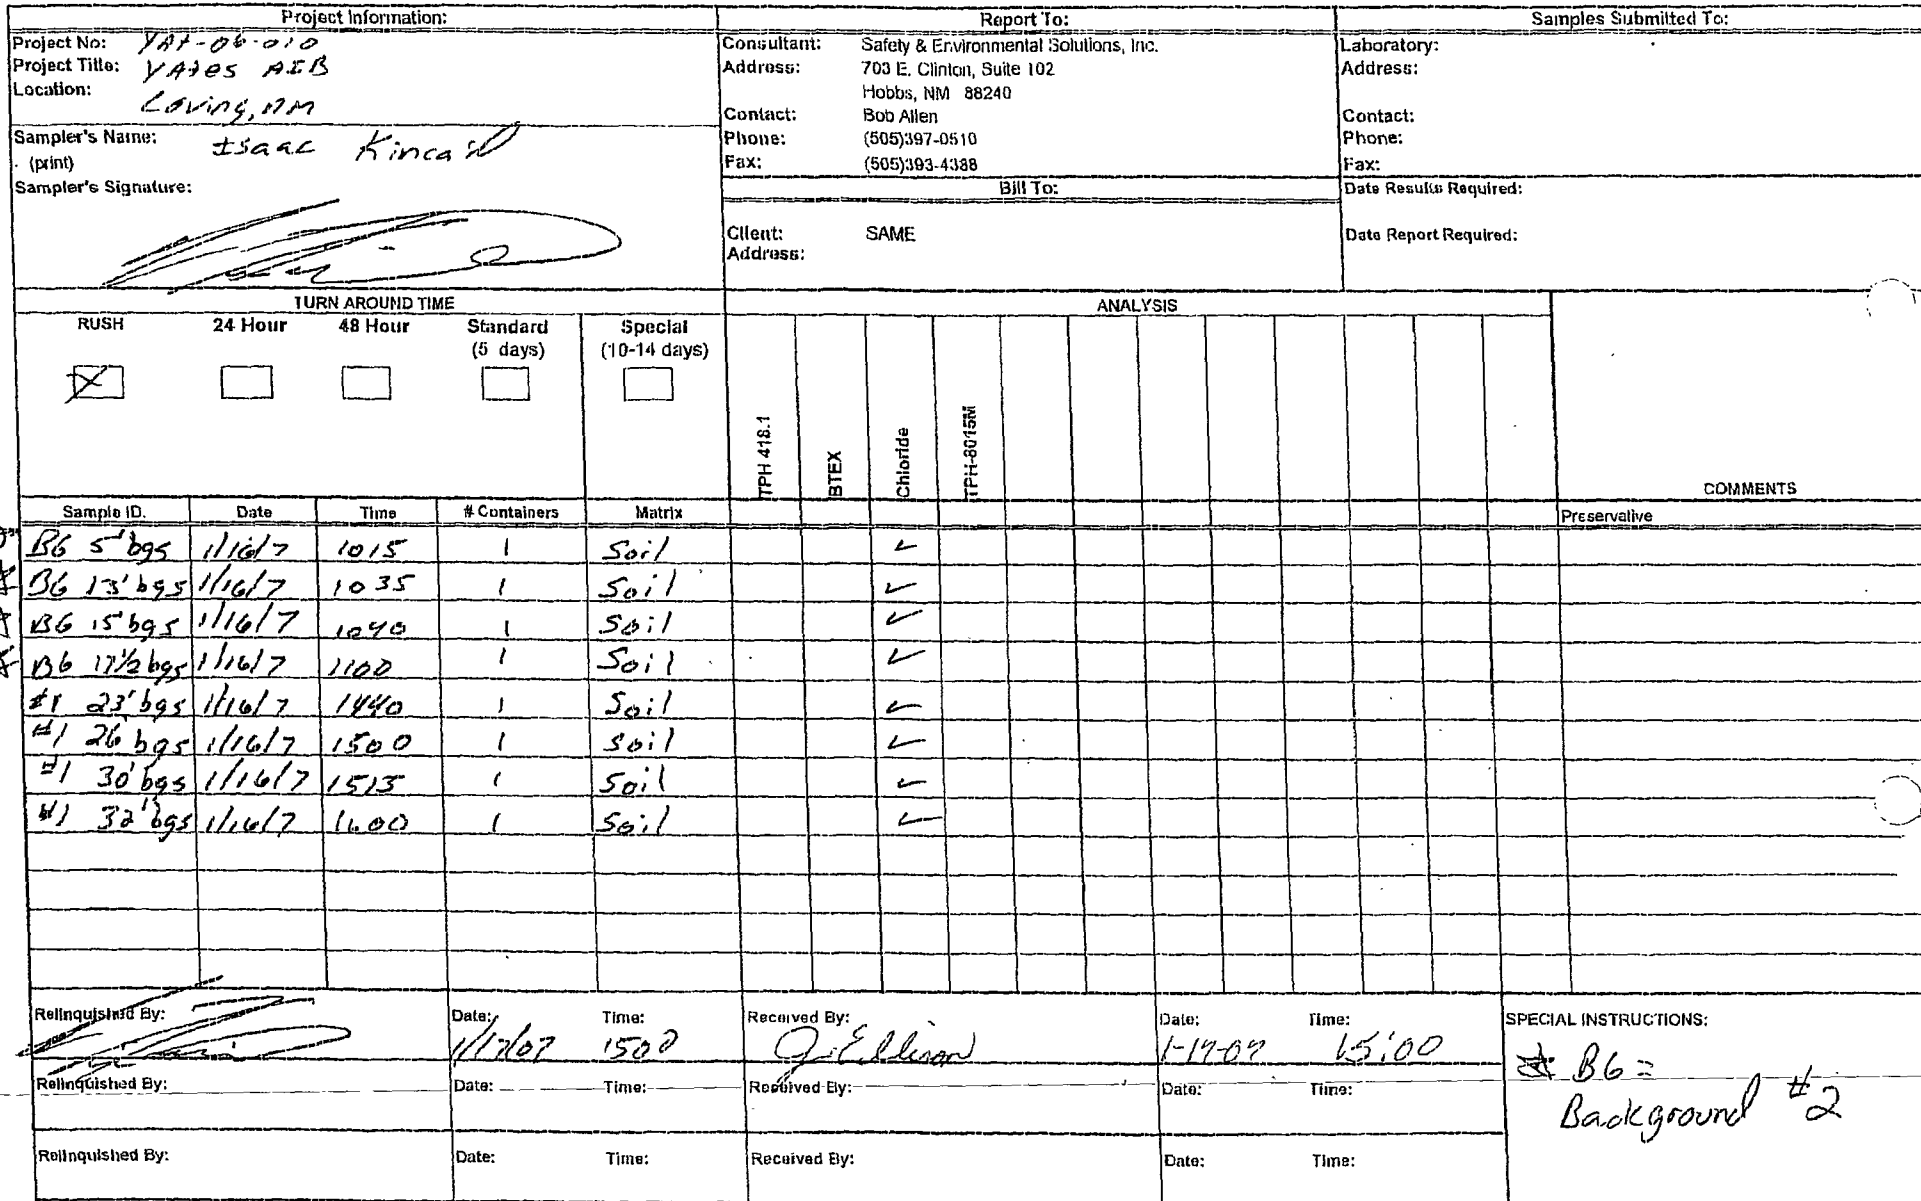 Project Information:
Project No: YAT-06-010
Project Title: YATES AIB
Location:
Loving, NM
Sampler's Name: Isaac Kincaid
(print)
Sampler's Signature:
Report To:
Consultant: Safety & Environmental Solutions, Inc.
Address: 703 E. Clinton, Suite 102
Hobbs, NM 88240
Contact: Bob Allen
Phone: (505)397-0510
Fax: (505)393-4388
Bill To:
Client: SAME
Address:
Samples Submitted To:
Laboratory:
Address:
Contact:
Phone:
Fax:
Date Results Required:
Date Report Required:
TURN AROUND TIME
RUSH 24 Hour 48 Hour Standard Special
(5 days) (10-14 days)
ANALYSIS
TPH 418.1
BTEX
Chloride
TPH-8015M
COMMENTS
Sample ID. Date Time # Containers Matrix Preservative
BG 5' bgs 1/16/7 1015 1 Soil ✓
BG 13' bgs 1/16/7 1035 1 Soil ✓
BG 15' bgs 1/16/7 1040 1 Soil ✓
BG 17½ bgs 1/16/7 1100 1 Soil ✓
#1 23' bgs 1/16/7 1440 1 Soil ✓
#1 26' bgs 1/16/7 1500 1 Soil ✓
#1 30' bgs 1/16/7 1515 1 Soil ✓
#1 32' bgs 1/16/7 1600 1 Soil ✓
Relinquished By: Date: 1/17/07 Time: 1500 Received By: J. Ellison Date: 1-17-07 Time: 15:00
Relinquished By: Date: Time: Received By: Date: Time:
Relinquished By: Date: Time: Received By: Date: Time:
SPECIAL INSTRUCTIONS:
☆ BG =
Background #2